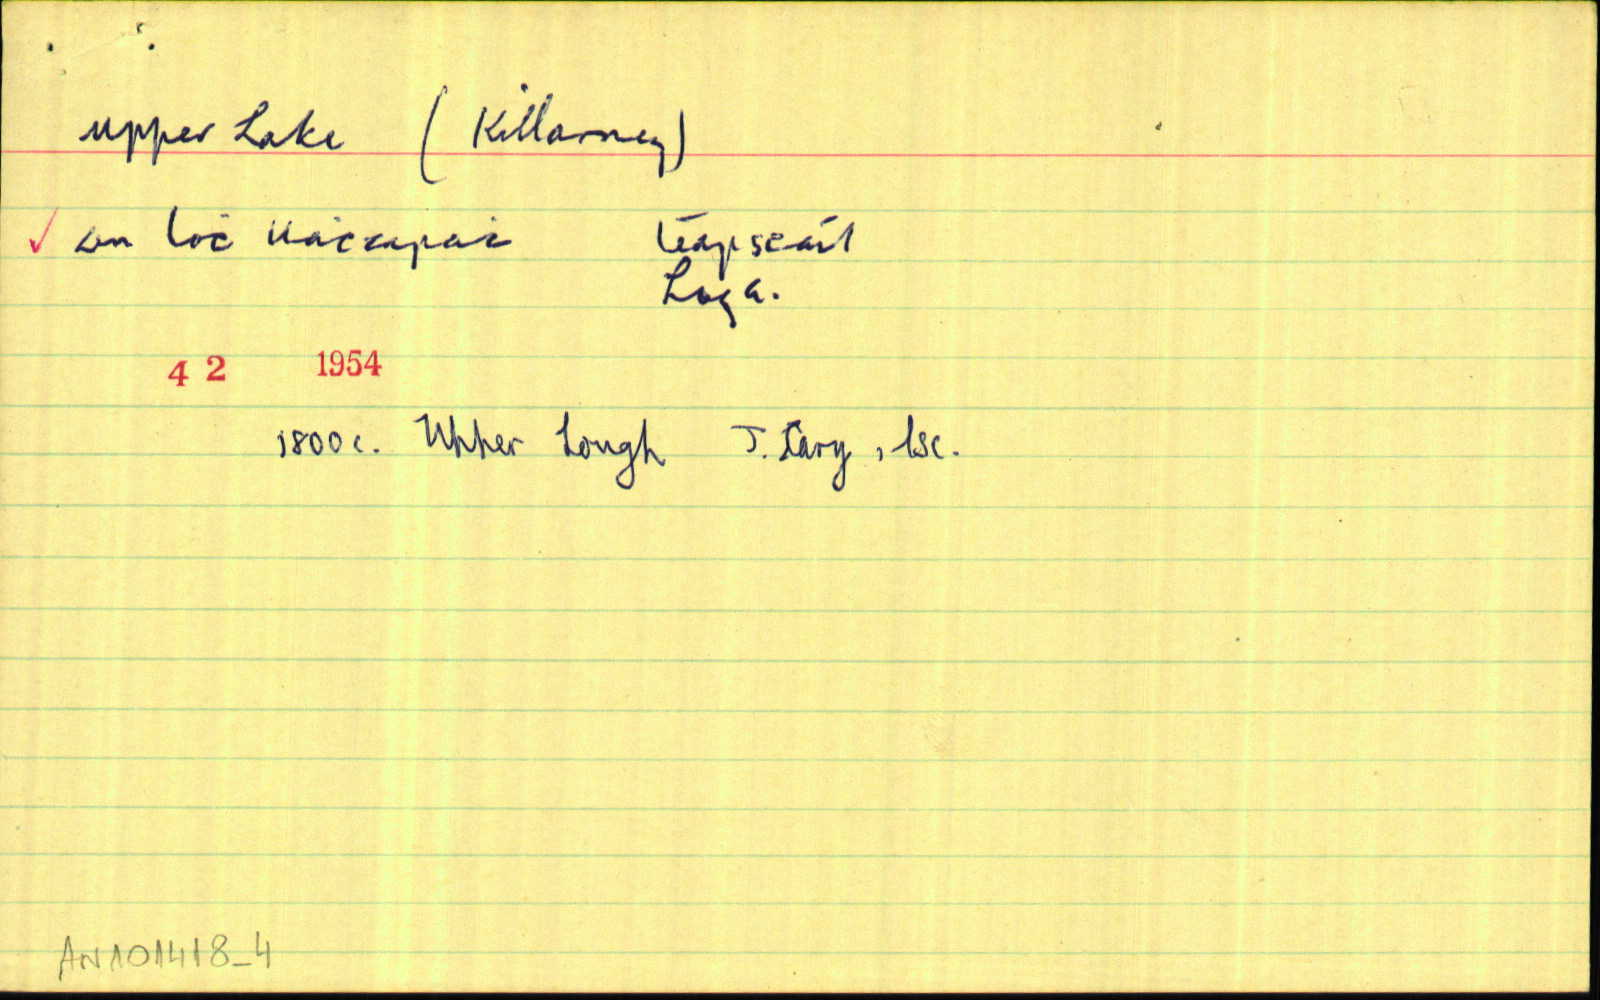 Upper Lake (Killarney)
✓ An loċ uaċtaraċ téarscáil
Loga.
4 2 1954
1800c. Upper Lough J. Lary, lsc.
AN101418_4